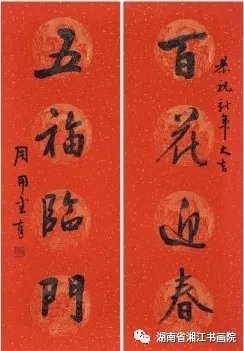 恭祝新年大吉
百花迎春
五福臨門
周用
湖南省湘江书画院